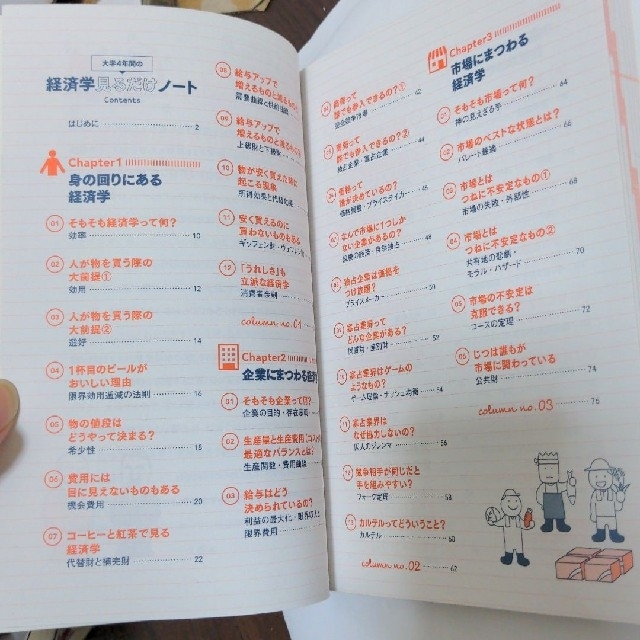 大学4年間の
経済学見るだけノート
Contents
はじめに 2
Chapter1
身の回りにある
経済学
01 そもそも経済学って何?
効率 10
02 人が物を買う際の
大前提①
効用 12
03 人が物を買う際の
大前提②
選好 14
04 1杯目のビールが
おいしい理由
限界効用逓減の法則 16
05 物の値段は
どうやって決まる?
希少性 18
06 費用には
目に見えないものもある
機会費用 20
07 コーヒーと紅茶で見る
経済学
代替財と補完財 22
08 給与アップで
増えるものと減るもの①
09 給与アップで
増えるものと減るもの②
上級財と下級財
10 物が安く買えた時に
起こる現象
所得効果と代替効果
11 安く買えるのに
買わないものもある
ギッフェン財・ヴェブレン
12 「うれしさ」も
立派な経済学
消費者余剰
column no.01
Chapter2
企業にまつわる経済
01 そもそも企業って何?
企業の目的・存在意義
02 生産量と生産費用(コスト
最適なバランスとは?
生産関数・費用曲線
03 給与はどう
決められているの?
利益の最大化・限界収入
限界費用
誰でも参入できるの?① 42
誰でも参入できるの?②
独占企業・寡占企業 44
誰が決めているの?
価格調整・プライステイカー 45
なんで市場に1つしか
ない企業があるの?
独占企業は価格を
つけ放題?
プライスメーカー
寡占業界って
どんな企業がある?
寡占業界はゲームの
ようなもの?
ゲーム理論・ナッシュ均衡 54
寡占業界は
なぜ協力しないの?
囚人のジレンマ 56
競争相手が何じだと
手を組みやすい?
フォーク定理 58
カルテルってどういうこと?
カルテル 60
column no.02 62
Chapter3
市場にまつわる
経済学
01 そもそも市場って何?
神の見えざる手 64
02 市場のベストな状態とは?
パレート最適 66
03 市場とは
つねに不安定なもの①
市場の失敗・外部性 68
04 市場とは
つねに不安定なもの②
共有地の悲劇・
モラル・ハザード 70
05 市場の不安定は
克服できる?
コースの定理 72
06 じつは誰もが
市場に関わっている
公共財 74
column no.03 76